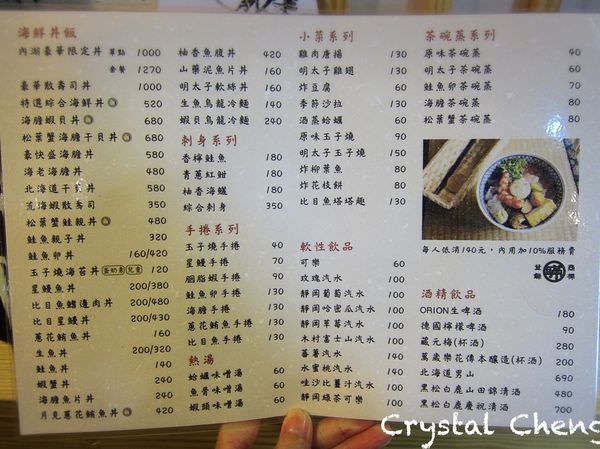 海鮮丼飯
內湖豪華限定丼 單點 1000
套餐 1270
豪華散壽司丼 1000
特選綜合海鮮丼 520
海膽蝦貝丼 680
松葉蟹海膽干貝丼 680
豪快盛海膽丼 580
海老海膽丼 480
北海道干貝丼 580
荒海蝦散壽司 350
松葉蟹鮭親丼 480
鮭魚親子丼 320
鮭魚卵丼 420/
玉子燒海苔丼 蛋奶素 兒童 120
星鰻丼 200/380
比目魚鰭邊肉丼 200/480
比目星鰻丼 200/430
蔥花鮪魚丼 160/
生魚丼 200/320
鮭魚丼 140
蝦蟹丼 240
海膽魚片丼 240
月見蔥花鮪魚丼 240
柚香魚腹丼 420
山藥泥魚片丼 160
明太子軟絲丼 160
生魚烏龍冷麵 140
蝦貝烏龍冷麵 240
刺身系列
香檸鮭魚 180
青蔥紅魽 180
柚香海鱺 180
綜合刺身 350
手捲系列
玉子燒手捲 40
星鰻手捲 70
胭脂蝦手捲 90
鮭魚卵手捲 90
海膽手捲 90
蔥花鮪魚手捲 90
比目魚手捲 90
熱湯
蛤蠣味噌湯 60
魚骨味噌湯 60
蝦頭味噌湯 60
小菜系列
雞肉唐揚 130
明太子雞翅 130
炸豆腐 60
季節沙拉 130
酒蒸蛤蠣 60
原味玉子燒 90
明太子玉子燒 150
炸柳葉魚 80
炸花枝餅 80
比目魚塔塔麵 130
軟性飲品
可樂 60
玫瑰汽水 100
靜岡葡萄汽水 100
靜岡哈密瓜汽水 100
靜岡草莓汽水 100
木村富士山汽水 100
蕃薯汽水 100
水蜜桃汽水 100
哇沙比薑汁汽水 100
靜岡綠茶可樂 100
茶碗蒸系列
原味茶碗蒸 40
明太子茶碗蒸 60
鮭魚卵茶碗蒸 80
海膽茶碗蒸 80
松葉蟹茶碗蒸 80
每人低消140元，內用加10%服務費
酒精飲品
ORION生啤酒 180
德國檸檬啤酒 90
蔵元梅(杯酒) 200
萬歲樂花傳本釀造(杯酒) 200
北海道男山 690
黑松白鹿山田錦清酒 480
黑松白鹿慶祝清酒 700
Crystal Cheng